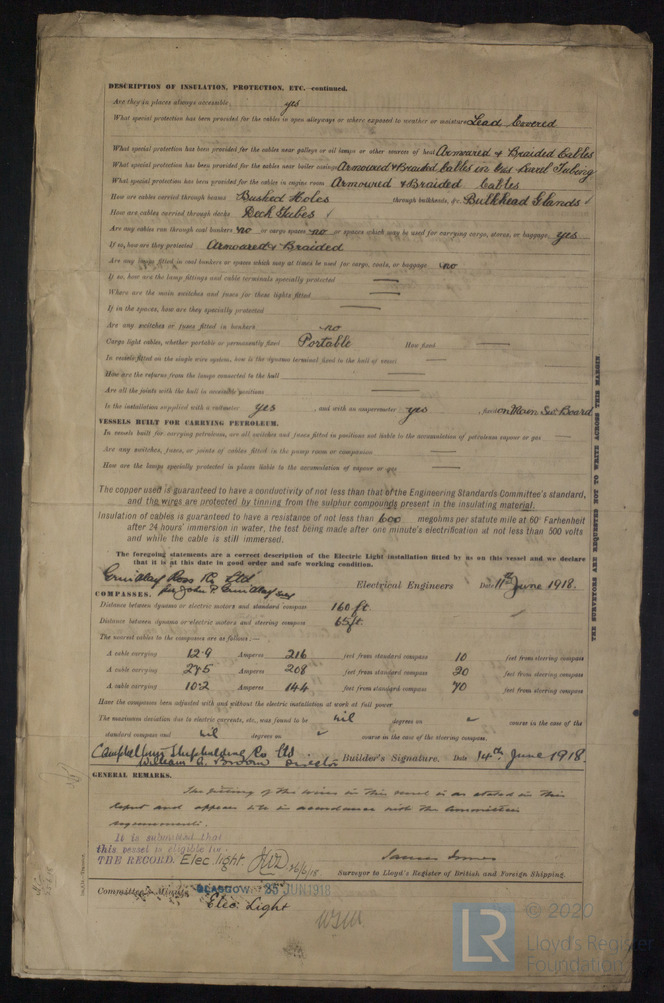 DESCRIPTION OF INSULATION, PROTECTION, ETC.—continued.
Are they in places always accessible yes
What special protection has been provided for the cables in open alleyways or where exposed to weather or moisture Lead Covered
What special protection has been provided for the cables near galleys or oil lamps or other sources of heat Armoured & Braided Cables
What special protection has been provided for the cables near boiler casings Armoured & Braided Cables in Gas Barrel Tubing
What special protection has been provided for the cables in engine room Armoured & Braided Cables
How are cables carried through beams Bushed Holes through bulkheads, &c. Bulkhead Glands
How are cables carried through decks Deck Tubes
Are any cables run through coal bunkers no or cargo spaces no or spaces which may be used for carrying cargo, stores, or baggage yes
If so, how are they protected Armoured & Braided
Are any lamps fitted in coal bunkers or spaces which may at times be used for cargo, coals, or baggage no
If so, how are the lamp fittings and cable terminals specially protected —
Where are the main switches and fuses for these lights fitted —
If in the spaces, how are they specially protected —
Are any switches or fuses fitted in bunkers no
Cargo light cables, whether portable or permanently fixed Portable How fixed —
In vessels fitted on the single wire system, how is the dynamo terminal fixed to the hull of vessel —
How are the returns from the lamps connected to the hull —
Are all the joints with the hull in accessible positions —
Is the installation supplied with a voltmeter yes , and with an amperemeter yes , fixed on Main Sw. Board
VESSELS BUILT FOR CARRYING PETROLEUM.
In vessels built for carrying petroleum, are all switches and fuses fitted in positions not liable to the accumulation of petroleum vapour or gas —
Are any switches, fuses, or joints of cables fitted in the pump room or companion —
How are the lamps specially protected in places liable to the accumulation of vapour or gas —
The copper used is guaranteed to have a conductivity of not less than that of the Engineering Standards Committee's standard,
and the wires are protected by tinning from the sulphur compounds present in the insulating material.
Insulation of cables is guaranteed to have a resistance of not less than 600 megohms per statute mile at 60° Farhenheit
after 24 hours' immersion in water, the test being made after one minute's electrification at not less than 500 volts
and while the cable is still immersed.
The foregoing statements are a correct description of the Electric Light installation fitted by us on this vessel and we declare
that it is at this date in good order and safe working condition.
Grindlay Ross Co Ltd
per John P. Grindlay Electrical Engineers Date 11th June 1918.
COMPASSES.
Distance between dynamo or electric motors and standard compass 160 ft.
Distance between dynamo or electric motors and steering compass 65 ft.
The nearest cables to the compasses are as follows:—
A cable carrying 12.9 Amperes 216 feet from standard compass 10 feet from steering compass
A cable carrying 27.5 Amperes 208 feet from standard compass 20 feet from steering compass
A cable carrying 10.2 Amperes 144 feet from standard compass 70 feet from steering compass
Have the compasses been adjusted with and without the electric installation at work at full power
The maximum deviation due to electric currents, etc., was found to be nil degrees on " course in the case of the
standard compass and nil degrees on " course in the case of the steering compass.
Campbeltown Shipbuilding Co Ltd
William A. Broom Director Builder's Signature. Date 14th June 1918
GENERAL REMARKS.
The fitting of the wires in this vessel is as stated in this
report and appears to be in accordance with the Committee's
requirements.
It is submitted that
this vessel is eligible for
THE RECORD. Elec. light 26/6/18
James Innes
Surveyor to Lloyd's Register of British and Foreign Shipping.
Committee's Minute GLASGOW. 25 JUN 1918
Elec. Light
THE SURVEYORS ARE REQUESTED NOT TO WRITE ACROSS THIS MARGIN.
LR
© 2020
Lloyd's Register
Foundation